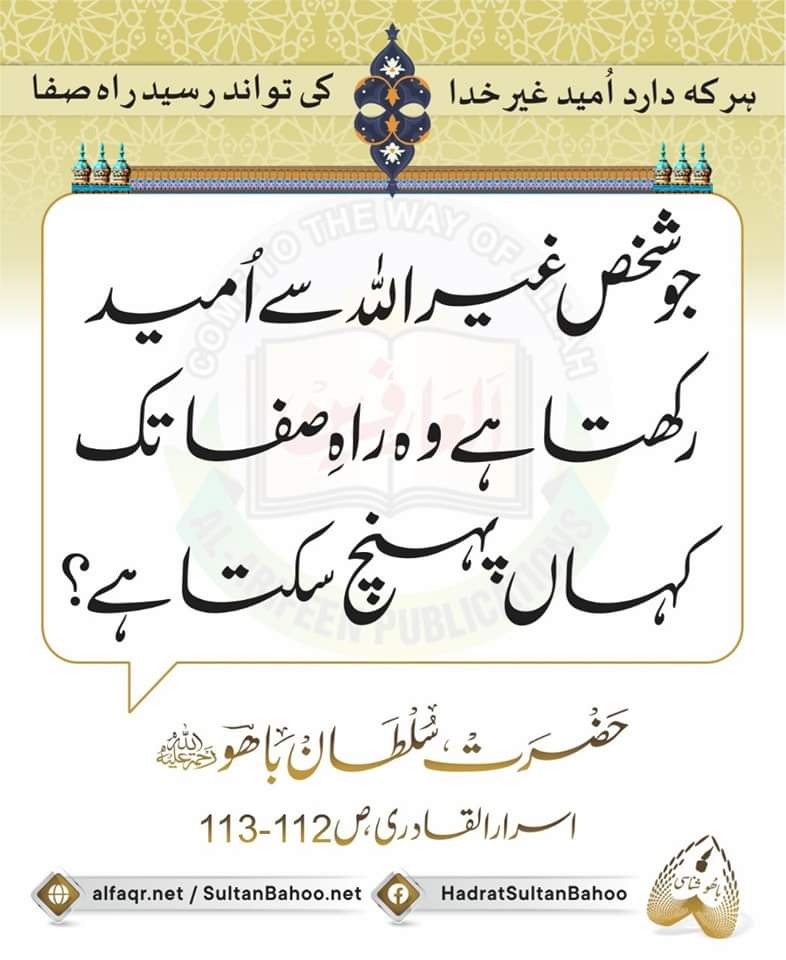 ہر کہ دارد اُمید غیر خدا کی تواند رسید راہ صفا
COME TO THE WAY OF ALLAH
جو شخص غیر اللہ سے اُمید
العارفین
رکھتا ہے وہ راہِ صفا تک
کہاں پہنچ سکتا ہے؟
AL-ARIFEEN PUBLICATIONS
حَضْرَت سُلْطَان بَاھُو رحمۃ اللہ علیہ
اسرار القادری، ص 112-113
alfaqr.net / SultanBahoo.net HadratSultanBahoo باھُو شناسی